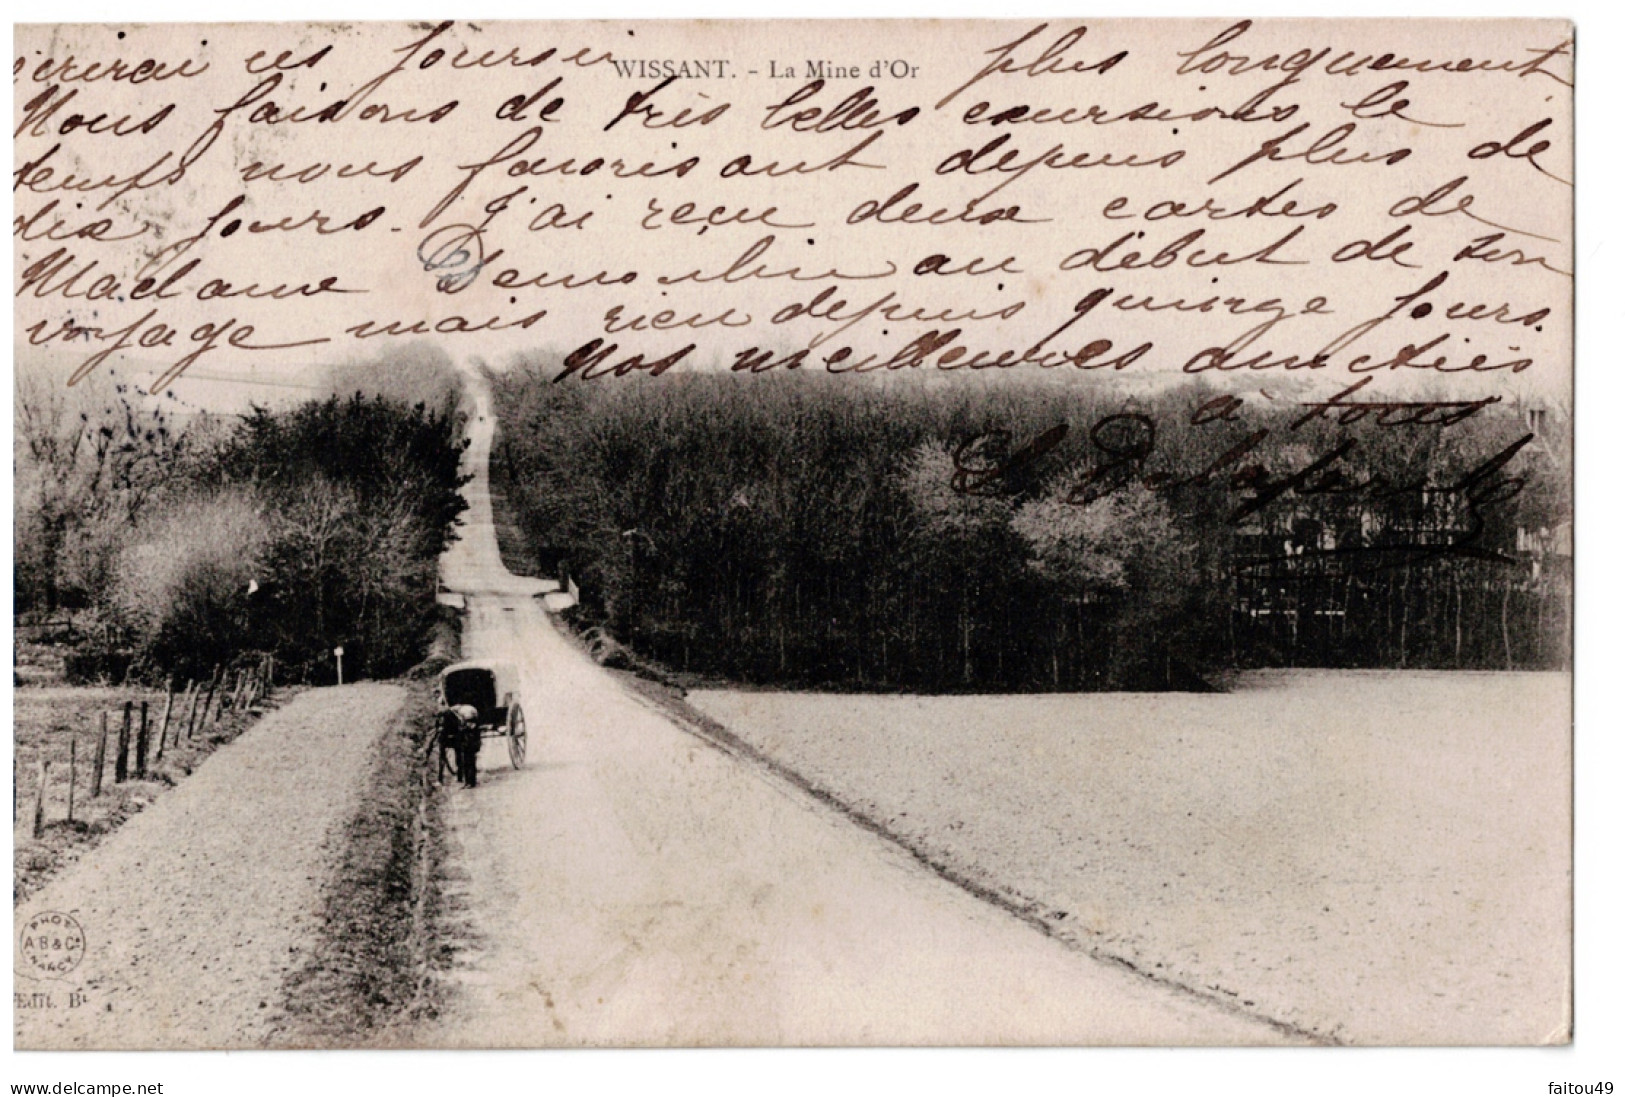 écrirai ces jours ci plus longuement
WISSANT. - La Mine d'Or
Nous faisons de très belles excursions le
temps nous favorisant depuis plus de
dix jours. J'ai reçu deux cartes de
Madame Demoulin au début de son
voyage mais rien depuis quinze jours.
Nos meilleures amitiés
à tous
PHOT
A B & Cie
NANCY
Edit. Bt
delcampe.net
faitou49